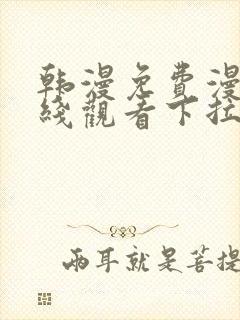 韩漫免費漫
綫觀看下拉
兩耳就是菩提